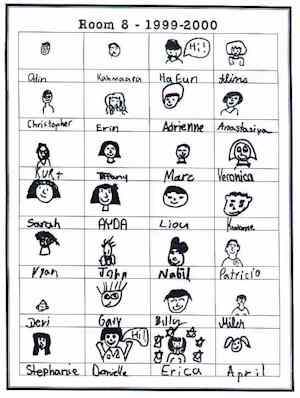 Room 8 - 1999-2000
Hi!
Odin Kahmaara HaEun Alina
Christopher Erin Adrienne Anastasiya
KURt Tiffany Marc Veronica
Sarah AYDA Liou
Ryan John Nabil Patricio
Devi Gary Billy Milch
Hi!
Stephanie Danielle Erica April